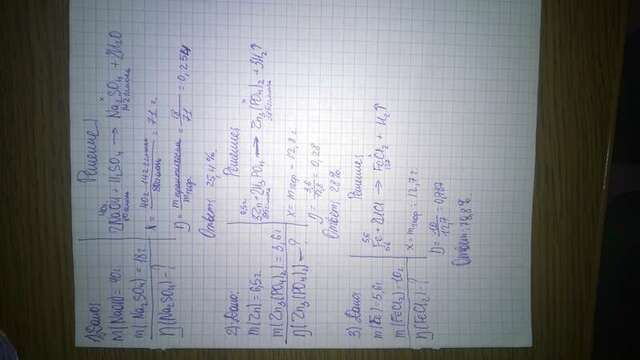 1) Дано:
m(NaOH)=40г
m(Na₂SO₄)=18г
η(Na₂SO₄)=?
Решение:
40г x
2NaOH + H₂SO₄ → Na₂SO₄ + 2H₂O
80г/моль 142г/моль
X = 40г·142г/моль / 80г/моль = 71г.
η = m практическая / m теор. = 18/71 = 0,254
Ответ: 25,4%
2) Дано:
m(Zn)=6,5г
m(Zn₃(PO₄)₂)=3,6г
η(Zn₃(PO₄)₂)-?
Решение:
6,5г x
3Zn+2H₃PO₄ → Zn₃(PO₄)₂+3H₂↑
x = m теор = 12,8г
η = 3,6/12,8 = 0,28
Ответ: 28%
3) Дано:
m(Fe)=5,6г
m(FeCl₂)=10г
η(FeCl₂)=?
Решение:
5,6 x
Fe + 2HCl → FeCl₂ + H₂↑
56 127
x = m теор = 12,7г
η = 10/12,7 = 0,787
Ответ: 78,8%